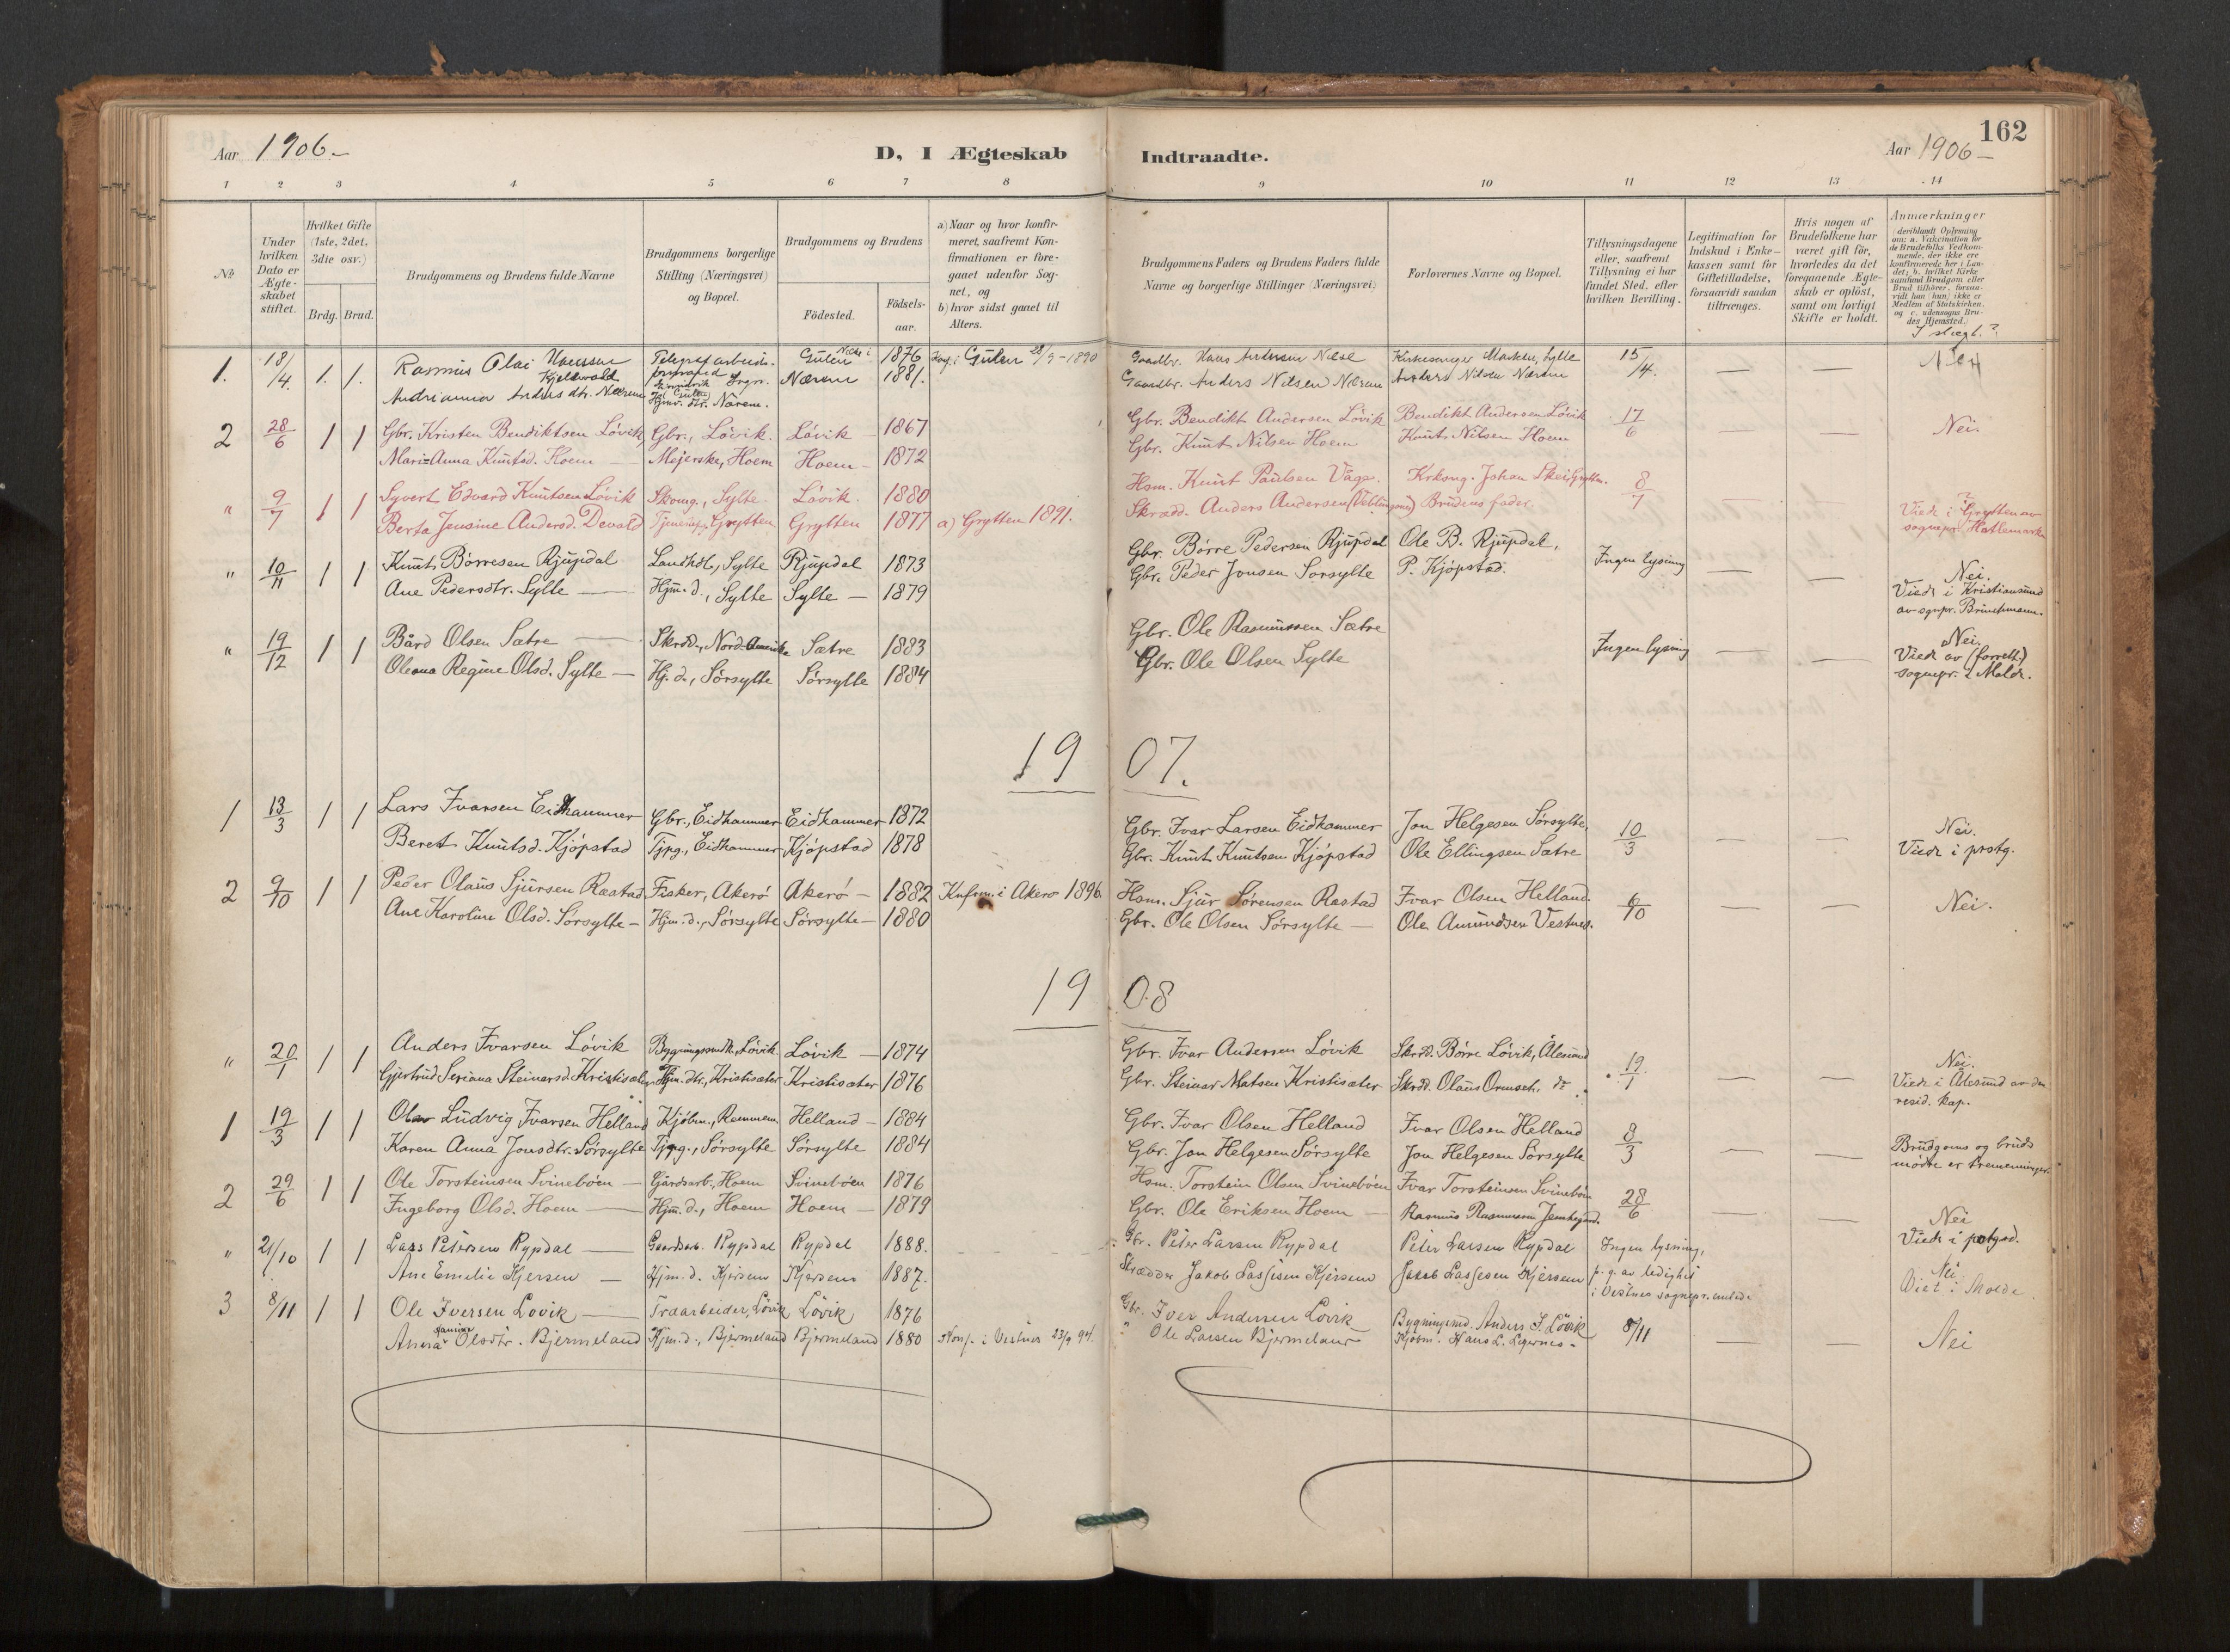 162
Aar 1906.-
D, I Ægteskab
Indtraadte.
Aar 1906-
1 2 3 4 5 6 7 8 9 10 11 12 13 14
No
Under hvilken Dato er Ægteskabet stiftet.
Hvilket Gifte (1ste, 2det, 3die osv.)
Brdg. Brud.
Brudgommens og Brudens fulde Navne
Brudgommens borgerlige Stilling (Næringsvei) og Bopæl.
Brudgommens og Brudens
Fødested.
Fødsels-aar.
a) Naar og hvor konfirmeret, saafremt Konfirmationen er foregaaet udenfor Sognet, og
b) hvor sidst gaaet til Alters.
Brudgommens Faders og Brudens Faders fulde Navne og borgerlige Stillinger (Næringsvei)
Forlovernes Navne og Bopæl.
Tillysningsdagene eller, saafremt Tillysning ei har fundet Sted, efter hvilken Bevilling.
Legitimation for Indskud i Enkekassen samt for Giftetilladelse, forsaavidt saadan tiltrænges.
Hvis nogen af Brudefolkene har været gift før, hvorledes da det foregaaende Ægteskab er opløst, samt om lovligt Skifte er holdt.
Anmærkninger (deriblandt Oplysning om: a. Vakcination for de Brudefolks Vedkommende, der ikke ere konfirmerede her i Landet; b. hvilket Kirkesamfund Brudgom eller Brud tilhører, forsaavidt han (hun) ikke er Medlem af Statskirken, og c. udensogns Brudes Hjemsted.)
I slægt?
1. 18/4. 1. 1. Rasmus Olai Hansen 1876 Konf. i Gulen 28/9-1890 Gaardbr. Hans Andersen Kirkesanger Sylte 15/4. — — Nei
Andrianna Anders dtr. Nærem Nærem 1881. Gaardbr. Anders Nilsen Nærem Anders Nilsen Nærem
2 28/6 1 1 Gbr. Kristen Bendiktsen Lövik Gbr., Lövik. Lövik — 1867 Gbr. Bendikt Andersen Lövik Bendikt Andersen Lövik 17/6 — — Nei
Mari-Anna Knutsd. Hoem — Mejerske, Hoem Hoem — 1872 Gbr. Knut Nilsen Hoem Knut Nilsen Hoem
" 9/7 1 1 Syvert Edvard Knutsen Lövik Skomg., Sylte. Lövik. 1880 Hsm. Knut Paulsen Våge. Krksng. Johan Skei Grytten. 8/7 — —
Berta Jensine Andersd. Devold Grytten Grytten 1877 a) Grytten 1891. Skrædd. Anders Andersen Brudens fader Viedr i Grytten av sognepr. Hatlemark
" 10/11 1 1 Knut Börresen Rjupdal Landhdl., Sylte Rjupdal 1873 Gbr. Börre Pedersen Rjupdal Ole B. Rjupdal, Ingen lysning — — Nei.
Ane Pedersdtr. Sylte — Hjm. d., Sylte Sylte — 1879 Gbr. Peder Jonsen Sorsylte P. Kjöpstad. Viedr i Kristiansund av sognpr. Brinchmann.
" 19/12 1 1 Bård Olsen Sætre — Skrdd., Nord-Amerika Sætre 1883 Gbr. Ole Rasmussen Sætre Ingen lysning — — Nei.
Oleana Regine Olsd. Sylte — Hj. d., Sörsylte Sörsylte 1884 Gbr. Ole Olsen Sylte Viedr av (forrett.) sognepr. i Molde.
1907.
1 13/3 1 1 Lars Ivarsen Eidhammer Gbr., Eidhammer Eidhammer 1872 Gbr. Ivar Larsen Eidhammer Jon Helgesen Sörsylte, 10/3 — — Nei.
Beret Knutsd. Kjöpstad Tjpg., Eidhammer Kjöpstad 1878 Gbr. Knut Knutsen Kjöpstad Ole Ellingsen Sætre Viedr i prstg.
2 9/10 1 1 Peder Olaus Sjursen Rastad Fisker, Akerö Akerö — 1882 Knfrm. i Akerö 1896. Hsm. Sjur Sörensen Rastad Ivar Olsen Helland 6/10 — — Nei.
Ane Karoline Olsd. Sörsylte — Hjm. d., Sörsylte Sörsylte — 1880 Gbr. Ole Olsen Sörsylte — Ole Amundsen Vestnes.
1908
" 20/1 1 1 Anders Ivarsen Lövik Lövik Lövik — 1874 Gbr. Ivar Andersen Lövik Skrdd. Börre Lövik, Ålesund 19/1 — — Nei.
Gjertrud Seriana Steinarsd. Kristisæter Hjm. dtr., Kristisæter Kristisæter 1876 Gbr. Steinar Matsen Kristisæter Skrdd. Olaus do Viedr i Ålesund av den resid. kap.
1 19/3 1 1 Ludvig Ivarsen Helland Kjöbm., Helland — 1884 Gbr. Ivar Olsen Helland Ivar Olsen Helland 8/3 — — Brudgoms og bruds mödre er tremenninger.
Karen Anna Jonsdtr. Sörsylte Tjpg., Sörsylte Sörsylte 1884 Gbr. Jon Helgesen Sörsylte Jon Helgesen Sörsylte
2 29/6 1 1 Ole Torsteinsen Svineböen — Gårdsarb., Hoem Svineböen 1876 Hsm. Torstein Olsen Svineböen Ivar Torsteinsen Svineböen 28/6 — —
Ingeborg Olsd. Hoem — Hjm. d., Hoem Hoem — 1879 Gbr. Ole Eriksen Hoem — Rasmus Rasmussen Nei
" 21/10 1 1 Lars Petersen Rypdal — Gaardsarb. Rypdal Rypdal 1888. Gbr. Peter Larsen Rypdal Peter Larsen Rypdal Ingen lysning, Viedr i prstgrd.
Ane Emelie Kjersem — Hjm. d. Kjersem Kjersem 1887. Skrædder Jakob Lassesen Kjersem Jakob Lassesen Kjersem p. g. av ledighet i Vestnes sognepr. embede Nei
3 8/11 1 1 Ole Iversen Lovik — Træarbeider, Lövik Lövik 1876 Gbr. Iver Andersen Lovik Bygningsmd. Anders I. Lövik 8/11 — — Viet i Molde.
Anna Olsdtr. Bjermeland Hjm. d., Bjermeland Bjermeland 1880 Konf. i Vestnes 23/9 94. " Ole Larsen Bjermeland Kjöbm. Hans L. Nei